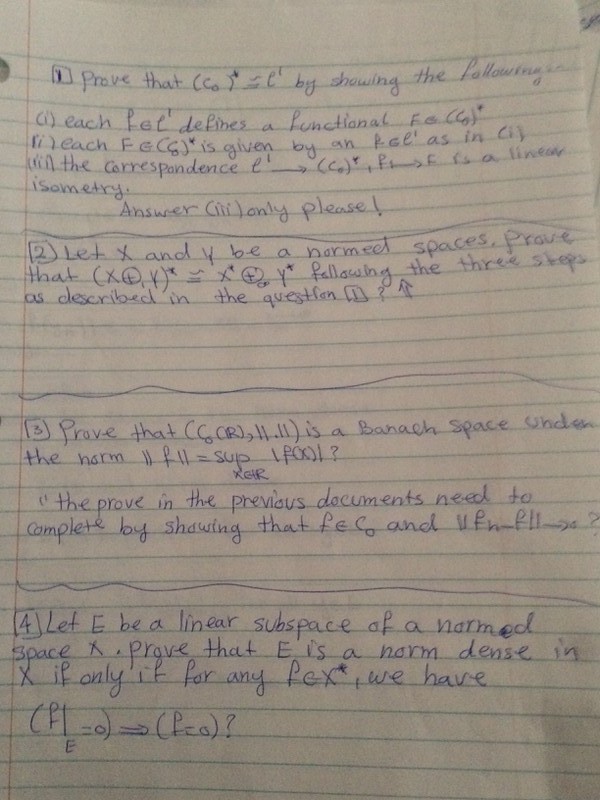 [1] Prove that (c₀)* ≅ ℓ¹ by showing the following:-
(i) each f∈ℓ¹ defines a functional F∈(c₀)*
(ii) each F∈(c₀)* is given by an f∈ℓ¹ as in (i)
(iii) the correspondence ℓ¹ → (c₀)*, f↦F is a linear
isometry.
Answer (iii) only please!
[2] Let X and Y be a normed spaces. Prove
that (X⊕₁Y)* ≅ X*⊕∞Y* following the three steps
as described in the question [1]? ↑
[3] Prove that (C₀(ℝ), ||.||) is a Banach space under
the norm ||f|| = sup |f(x)|?
x∈ℝ
"the prove in the previous documents need to
complete by showing that f∈C₀ and ||fn-f||→0?
[4] Let E be a linear subspace of a normed
space X. prove that E is a norm dense in
X if only if for any f∈X*, we have
(f|E=0) ⟹ (f=0)?